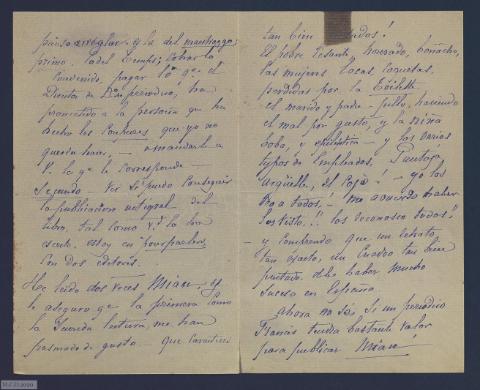 pienso arreglar y la del mameluco;
primo. la del Temps; cobrar lo
convenido, pagar lo qe. el
Director de Don periodico, ha
prometido a la persona que ha
hecho las que yo no
queria hacer, – o mandarle a
V. lo qe. le corresponde –
Segundo – Ver si puedo conseguir
la publicacion integral del
libro, tal como Vd. lo ha
escrito. estoy en pourparlers
con dos editores.
He leido dos veces Miau, y
le aseguro qe. la primera como
la segunda lectura, me han
pasmado de gusto que caracteres
tan bien !
El pobre Cesante honrado, boñacho,
las mujeres locas, coquetas,
perdidas por la Toilette.
el marido y padre – pillo, haciendo
el mal por gusto, y la niña
boba, y epileptica – y los varios
typos de Empleados. Pantoja,
Argüelles, el Cojo! – yo los
veo a todos. – Me acuerdo haber
los visto!! los reconosco todos!!
– y comprendo que un retrato
tan exacto, un cuadro tan bien
pintado. debe haber mucho
suceso en España.
ahora no sé, si un periodico
Francés tendrá bastante valor
para publicar Miau!